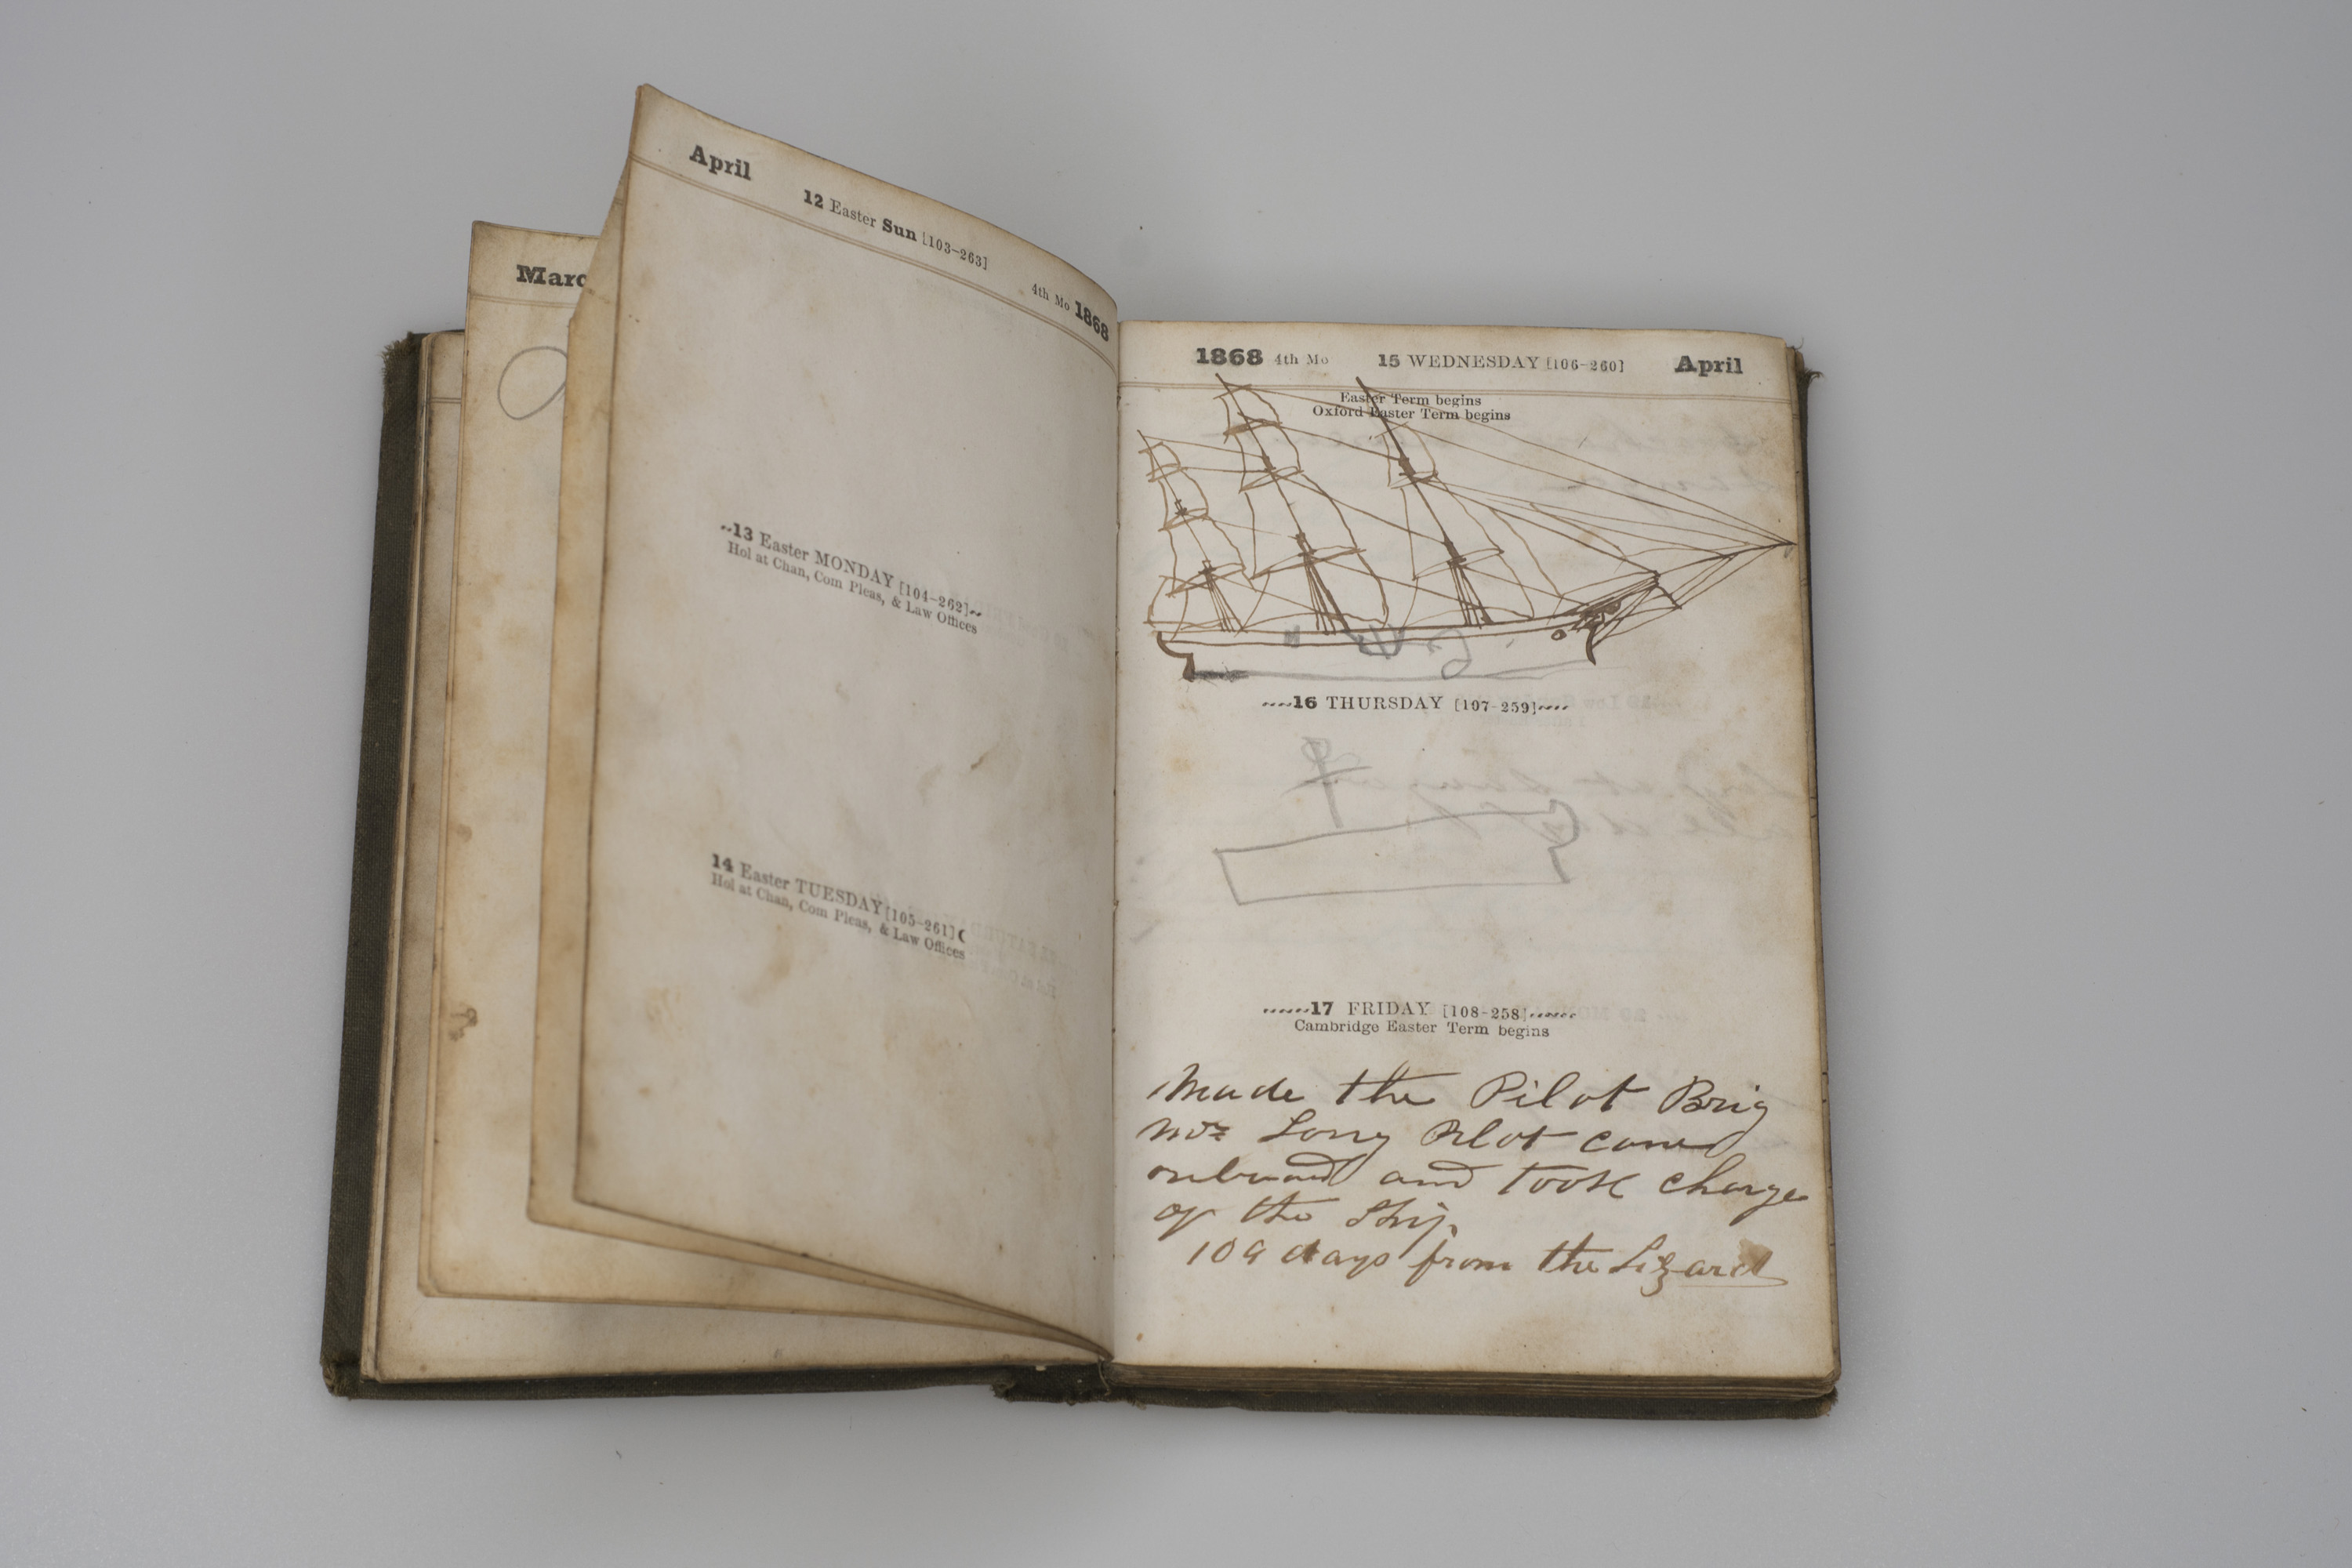 Marc
April
12 Easter Sun [103-263]
4th Mo 1868
13 Easter MONDAY [104-262]
Hol at Chan, Com Pleas, & Law Offices
14 Easter TUESDAY [105-261]
Hol at Chan, Com Pleas, & Law Offices
1868 4th Mo 15 WEDNESDAY [106-260] April
Easter Term begins
Oxford Easter Term begins
16 THURSDAY [107-259]
17 FRIDAY [108-258]
Cambridge Easter Term begins
Made the Pilot Brig
Mr Long Pilot came
onboard and took charge
of the Ship.
109 days from the Lizard